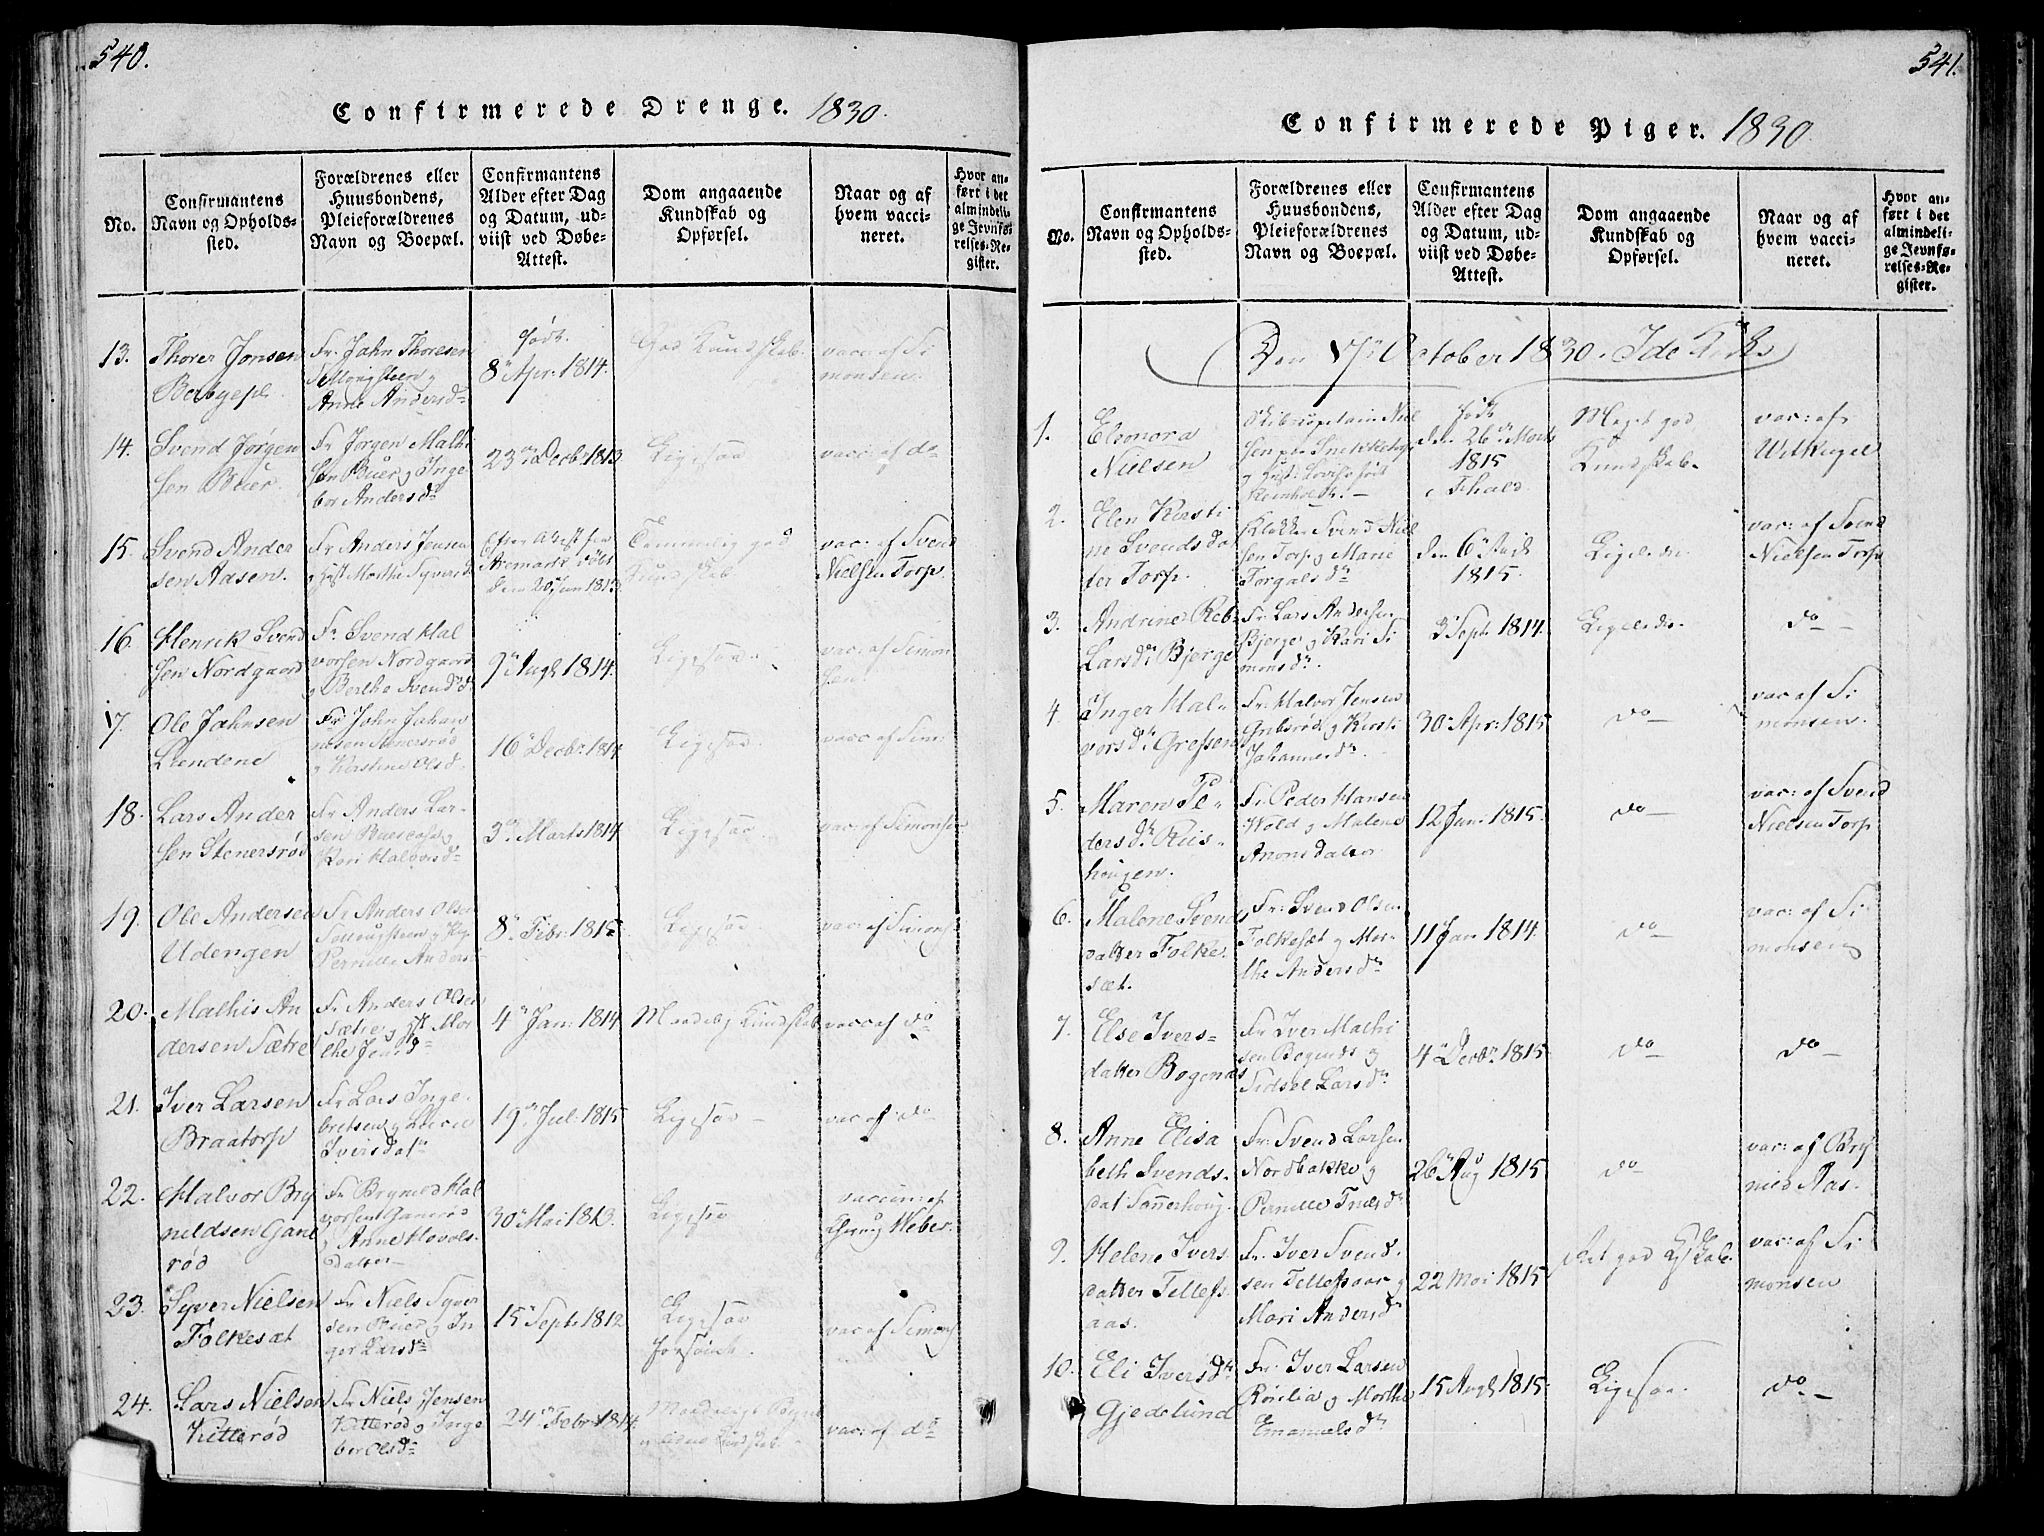 540.
Confirmerede Drenge. 1830.
No.
Confirmantens
Navn og Opholds-
sted.
Forældrenes eller
Huusbondens,
Pleieforældrenes
Navn og Boepæl.
Confirmantens
Alder efter Dag
og Datum, ud-
viist ved Døbe-
Attest.
Dom angaaende
Kundskab og
Opførsel.
Naar og af
hvem vacci-
neret.
Hvor an-
ført i det
almindeli-
ge Jevnfø-
relses-Re-
gister.
13.
Thorer Jonsen
Fr. John Thoresen
Anne Andersdr
født
8de Apr. 1814.
God Kundskab.
vacc: af Si
monsen.
14.
Svend Jørgen
sen Buer.
Fr. Jørgen Mathi
sen Buer og Inge
bor Andersdr
23de Decbr 1813
Ligesaa
vacc: af do
15.
Svend Ander
sen Aasen.
Fr Anders Jensen
Aremark født
den 20 Jun 1813
Temmelig god
Kundskab
vac: af Svend
Nielsen Torp.
16.
Henrik Svend
sen Nordgaard
Fr. Svend Hal
vorsen Nordgaard
og Berthe Svendsdr
9de Augt 1814.
Ligesaa
vac: af Simon
sen.
17.
Ole Johnsen
Lundene
Fr John Johan
nesen Stenersrød
og Kirstine Olsdr
16de Decbr 1814
Ligesaa
vacc af Sim:
18.
Lars Ander
sen Stenersrød
Fr Anders Lar-
sen
Kari Halvorsdr
3de Marts 1814
Ligesaa
vac: af Simonsen
19.
Ole Andersen
Udengen
Fr Anders Olsen
Pernille Anders
8de Febr: 1815
Ligesaa
vac: af Simons
20.
Mathis An
dersen Sætre
Fr Anders Olsen
Sætre og Hst Mor
the Jensdr
4de Jan: 1814
Maadelig Kundskab
vacc af do
21.
Iver Larsen
Braatorp
Fr Lars Inge-
bretsen og
Iversdatr
19de Jul: 1815
Ligesaa
vac af do
22.
Halvor Bry
nildsen Gane
rød
Fr. Brynild Hal
vorsen Ganerød
og Anne Hovels-
datter
30de Mai 1813.
Ligesaa
vaccin: af
Weber.
23.
Syver Nielsen
Folkesæt
Fr Niels Syver
sen Buer og In
ger Larsdr
15de Septr 1812
Ligesaa
forsømt.
vac af Simons
24.
Lars Nielsen
Kitterød
Fr Niels Jensen
Kitterød og Inge
ber Olsdr
24de Febr 1814.
vac: af do
541.
Confirmerede Piger. 1830.
No.
Confirmantens
Navn og Opholds-
sted.
Forældrenes eller
Huusbondens,
Pleieforældrenes
Navn og Boepæl.
Confirmantens
Alder efter Dag
og Datum, ud-
viist ved Døbe-
Attest.
Dom angaaende
Kundskab og
Opførsel.
Naar og af
hvem vacci-
neret.
Hvor an-
ført i det
almindeli-
ge Jevnfø-
relses-Re-
gister.
Den 17de October 1830 i Ide Kirke
1.
Eleonora
Nielsen
Skibscapitain Niel
sen
født
den 26de Marts
1815
i Fhald.
Meget god
Kundskab.
vac: af
2.
Elen Kirsti
ne Svendsdat
ter Torp.
Klokker Svend Niel
sen Torp og Marie
Torgalsdr
den 6te
1815.
Ligeledes
vac: af Svend
Nielsen Torp
3.
Andrine Reb:
Larsdr Bjerge
Fr. Lars Andersen
Bjerge og Kari Si
monsdr.
3 Sept 1814.
Ligeledes
do
4.
Inger Hal-
vorsdr Gressen
Fr. Halvor Jensen
og Kirsti
Johannesdr.
30de Apr: 1815
do
vac af Si
monsen.
5.
Maren Pe-
dersdr Riis-
hougen.
Fr. Peder Hansen
Wold og Malene
Amonsdatter
12 Jan: 1815.
do
vac: af Svend
Nielsen Torp
6.
Malene Svend
datter Folke-
sæt.
Fr: Svend Olsen
Folkesæt og Mar-
the Andersdr
11 Jan 1814.
do
vac: af Si
monsen
7.
Else Ivers-
datter Bogenæs
Fr Iver Mathi
sen Bogenæs og
Sidsel Larsdr
4de Decbr 1815
do
do
8.
Anne Elisa
beth Svends-
dat Sannerhoug.
Fr: Svend Larsen
Nordbakke og
Pernille
26de Aug 1815
do
vac: af Bryn
nild Aas.
9.
Helene Ivers-
datter Tellefs-
aas.
Fr. Iver Svend-
sen Tellefsaas og
Mari Andersdr
22 Mai 1815
vac: af Si
monsen
10.
Eli Iversdr
Gjedelund
Fr. Iver Larsen
og Marthe
Emanuelsdr
15 Augt 1815.
Ligesaa.
do